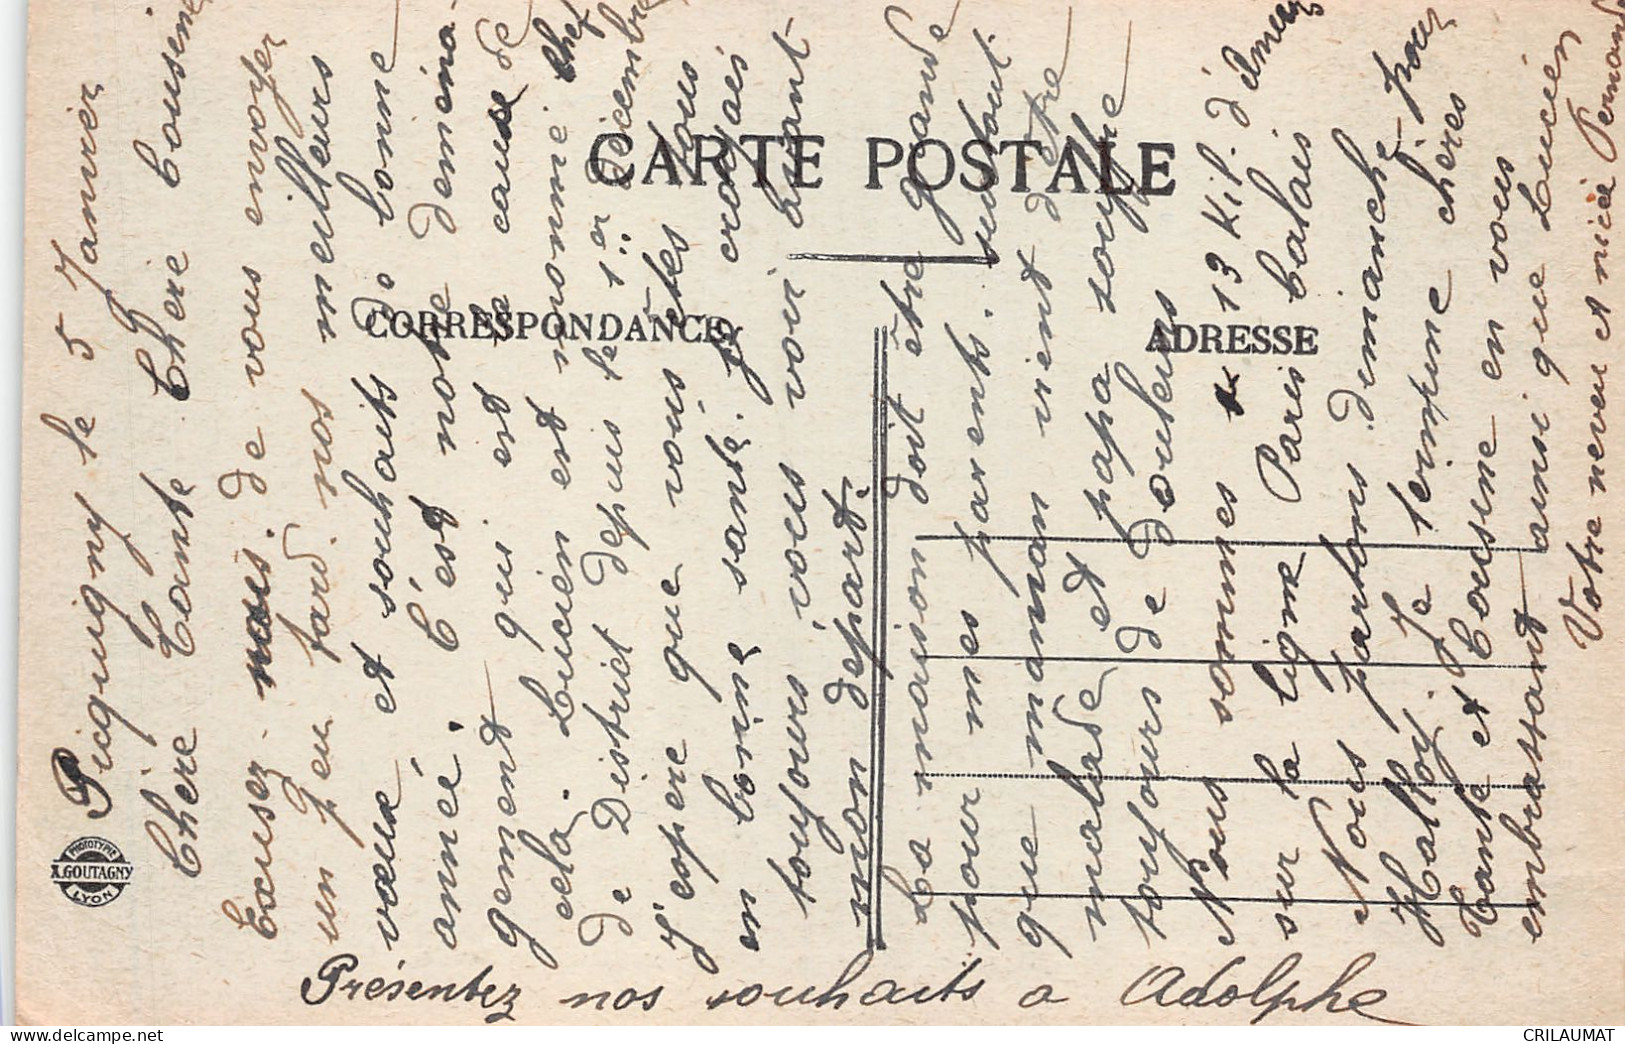 CARTE POSTALE
CORRESPONDANCE
ADRESSE
PHOTOTYPIE
A. GOUTAGNY
LYON
Picquigny le 5 Janvier
Chère Tante Chère Cousine
Excusez nous de vous envoyer
un peu tard nos meilleurs
vœux et souhaits de bonne
année. C'est notre déména-
gement qui est la cause de
cela. Lucien est nommé chef
de District depuis le 1er Décembre
J'espère que vous êtes tous
en bonne santé. Je croyais
toujours vous voir avant
mon départ.
La maison doit être grande
pour mes parents. surtout
que maman vient d'être
malade et papa souffre
toujours de douleurs
Nous sommes à 13 Kil. d'Amiens
sur la ligne Paris Calais
Nous partons dimanche pour
Halloy. Je termine chères
Tante et Cousine en vous
embrassant ainsi que Lucien
Votre neveu et nièce Fernande
Présentez nos souhaits a Adolphe
CRILAUMAT